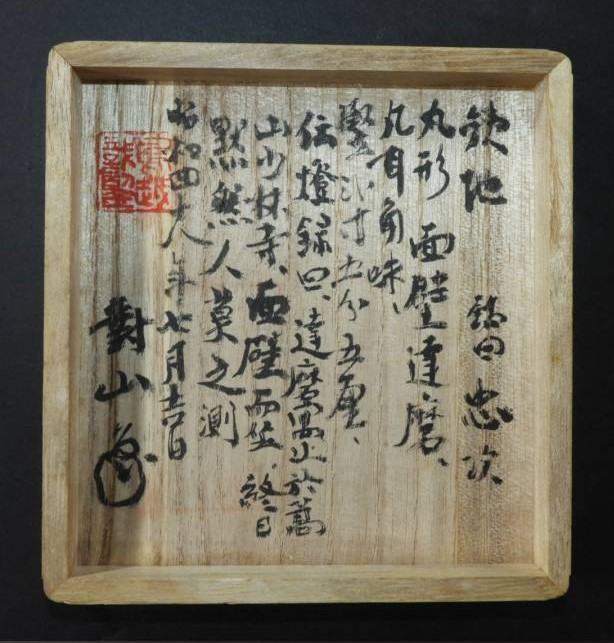 鉄地 銘曰 忠次
丸形 面壁達磨、
凡耳角味、
竪 寸五分五厘、
伝燈録曰、達磨寓止於嵩
山少林寺、面壁而坐、終日
黙然人莫之測
昭和四十八年七月吉日
對山